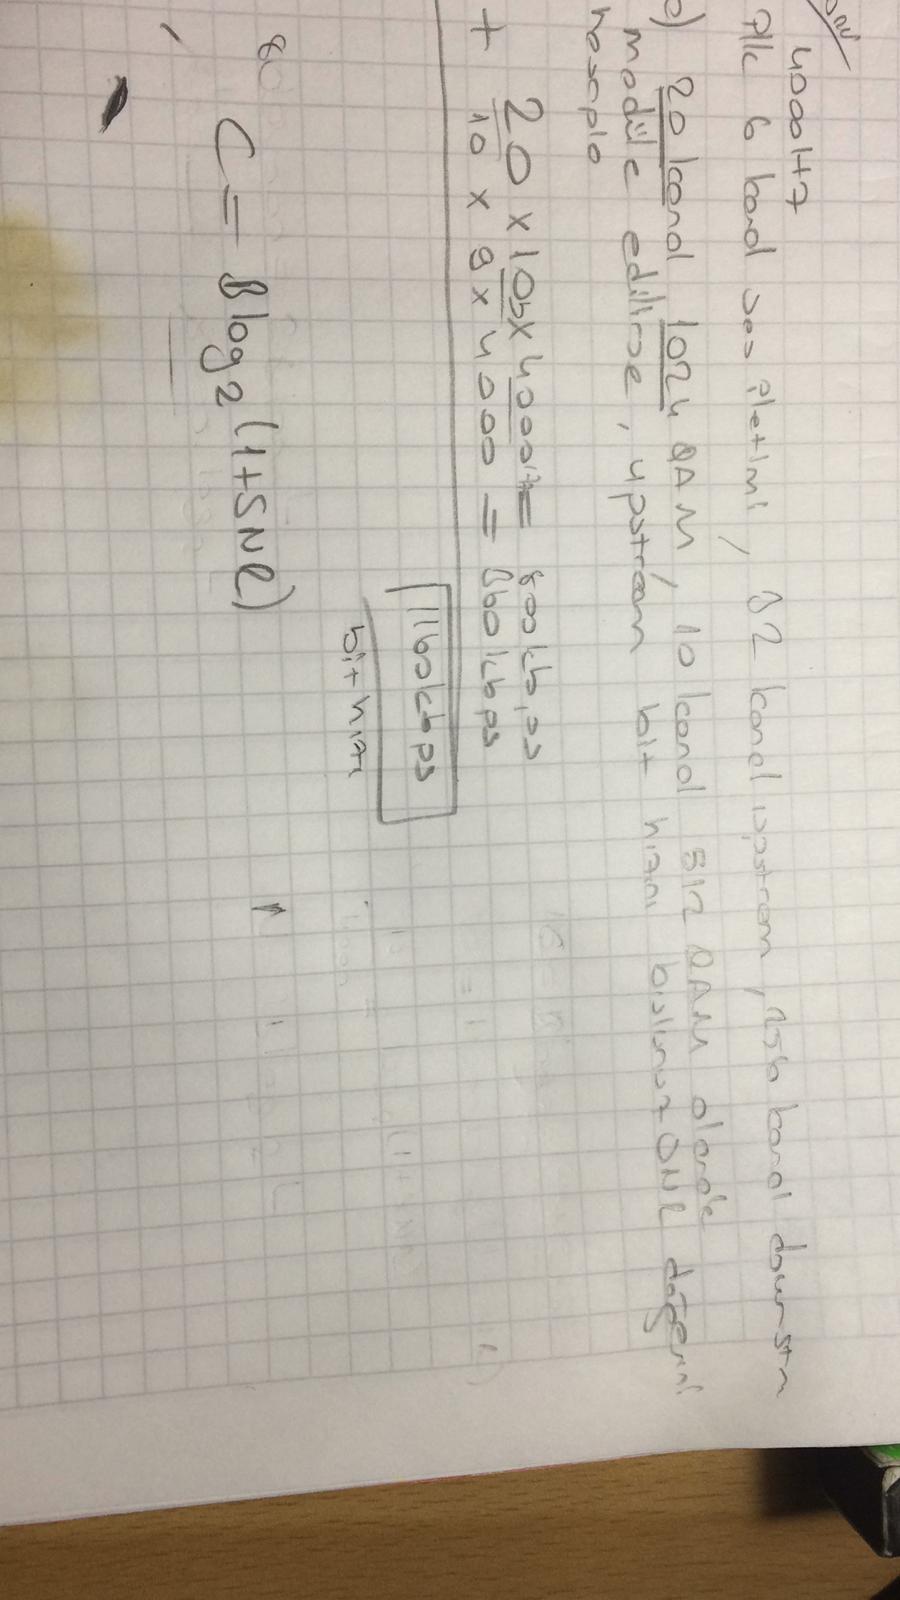 4000Hz
ilk 6 kanal ses iletimi, 32 kanal upstream, 256 kanal downstm
e) 20 kanal 1024 QAM, 10 kanal 512 QAM olarak
modüle edilirse, upstream bit hızını bulunuz SNR değerini
hesapla
20 x 10b x 4000Hz = 800kb,ps
+ 10 x 9 x 4000 = 360kbps
1160kbps
bit hızı
C = B log2 (1+SNR)